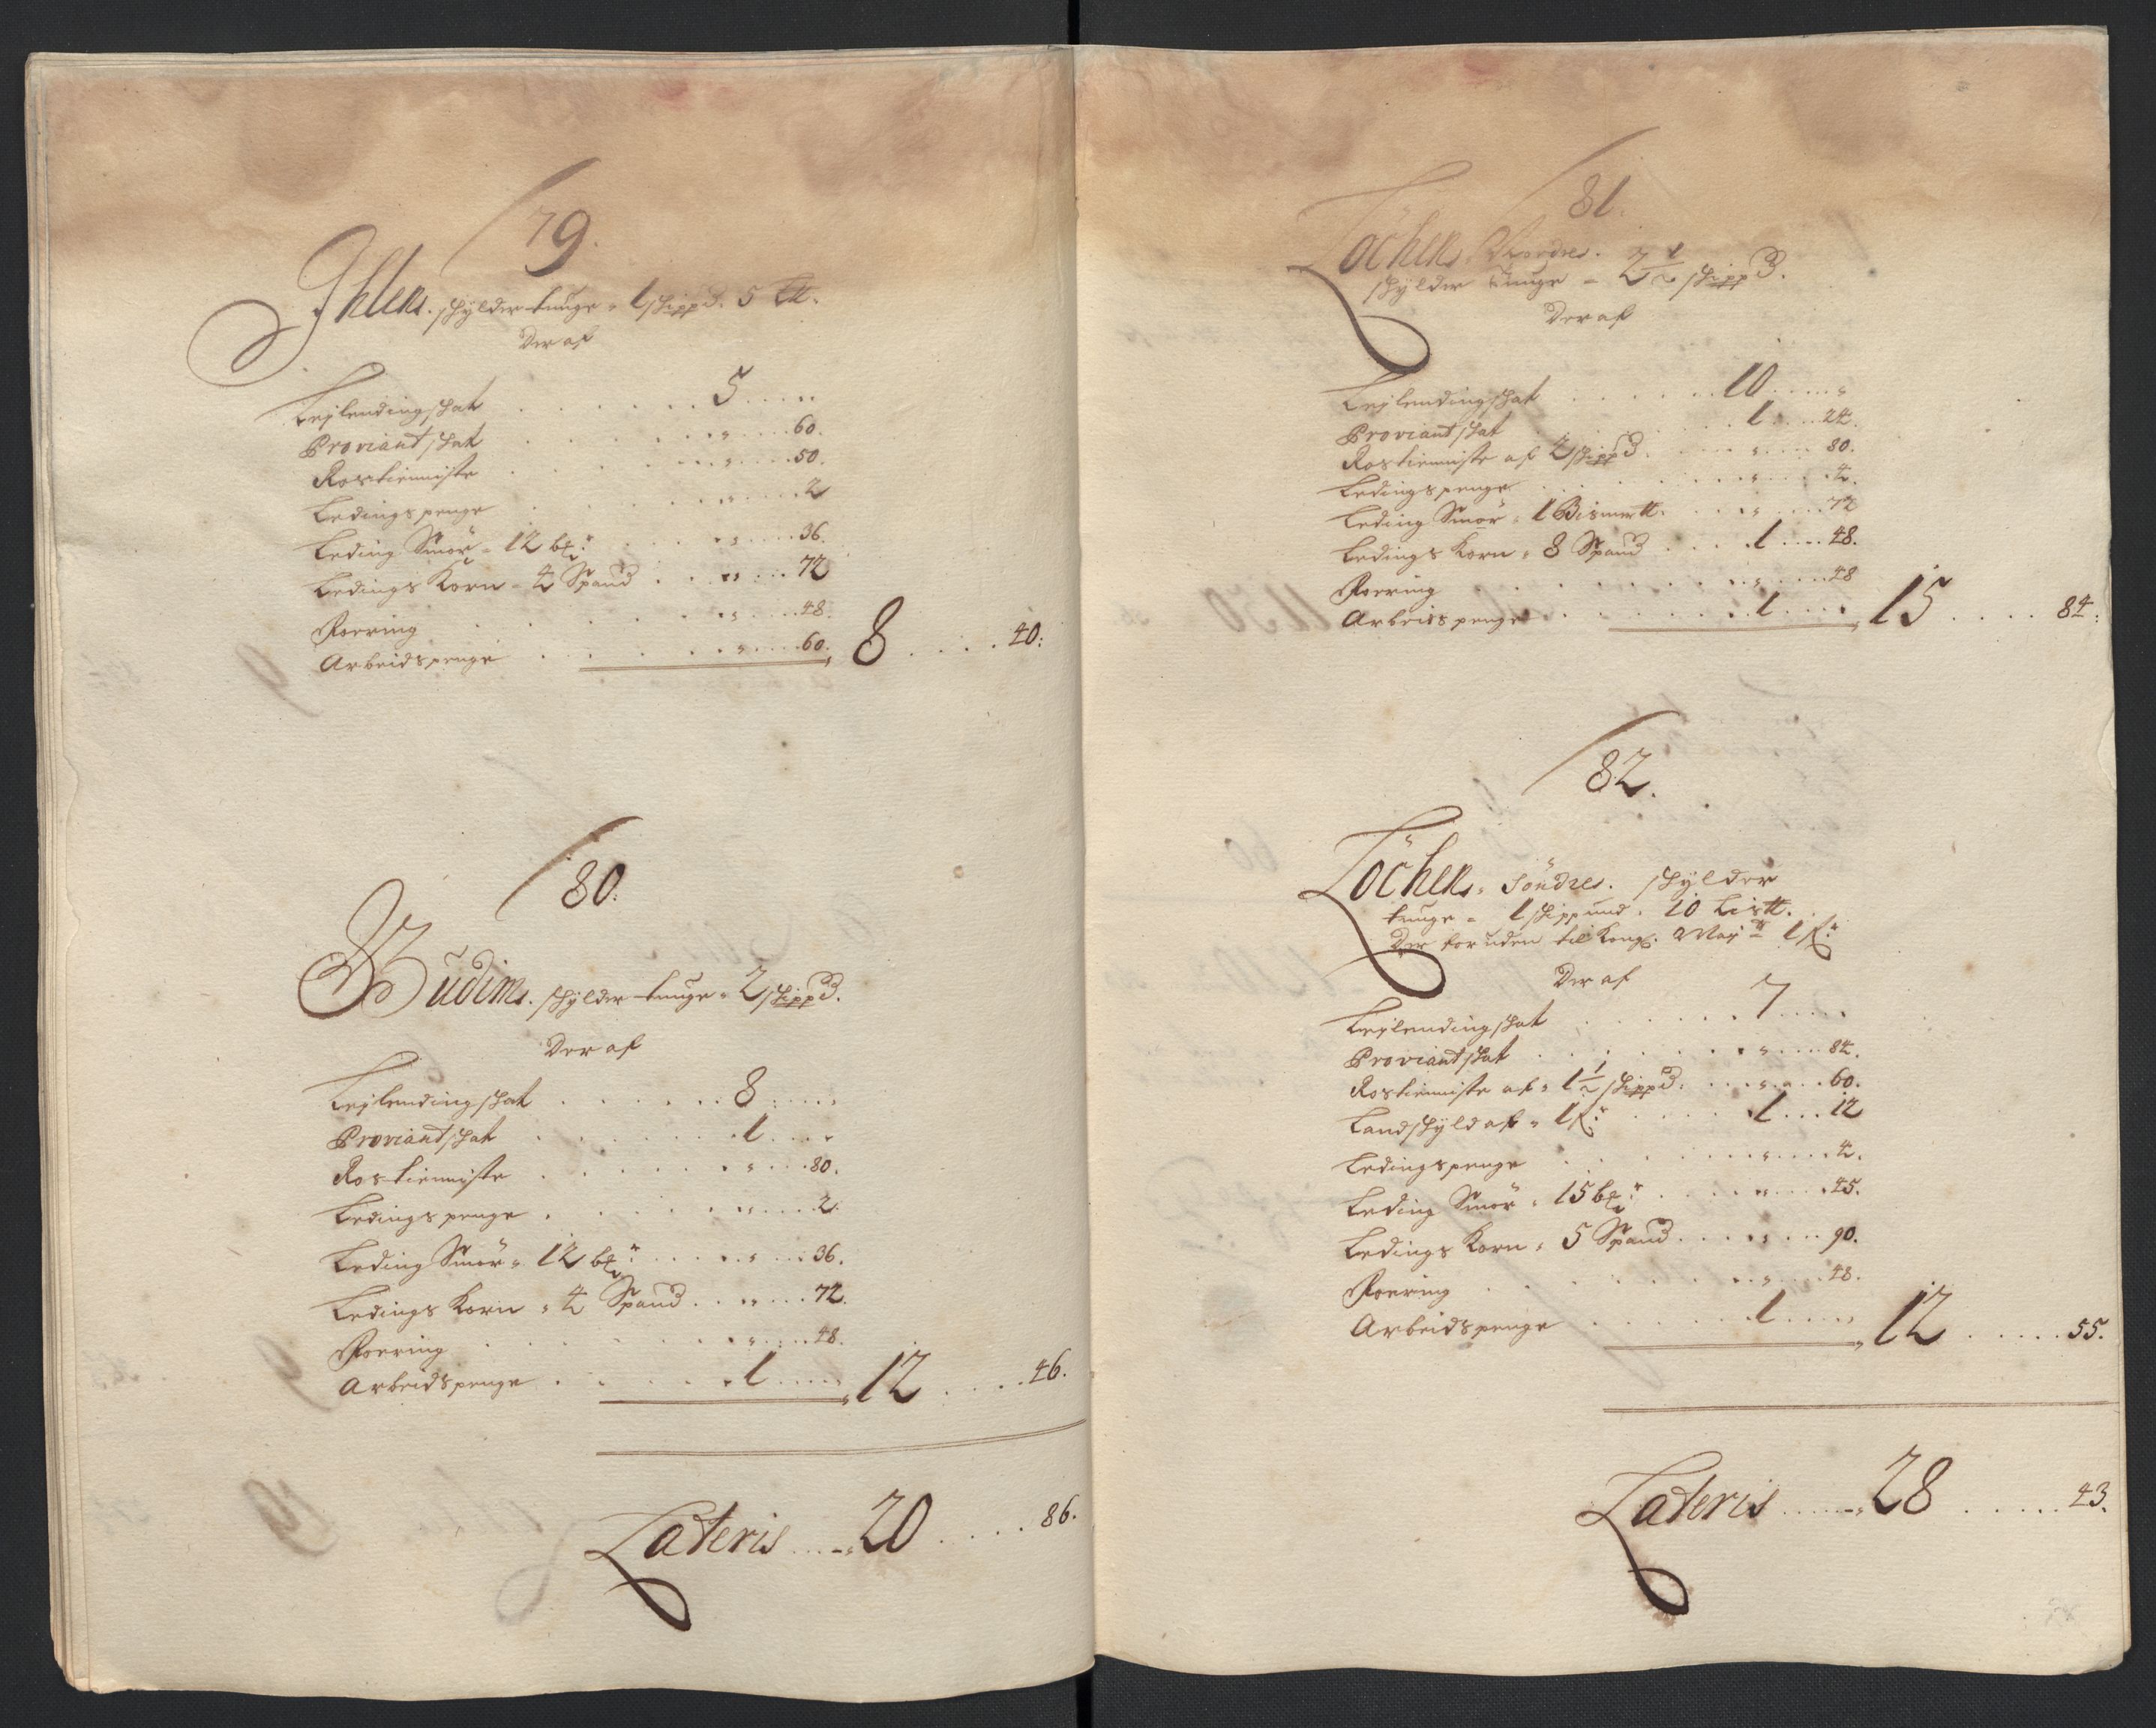 79.
Ihlen. skylder tunge = 1 skipp℔. 5 L℔.
Der af
Leylendingskat . . . . . . 5 . . . .
Proviantskat . . . . . . " . . . 60.
Rostienniste . . . . . . " . . . 50.
Ledingspenge . . . . . . " . . . 2
Leding Smör = 12 bt:r . . . " . . . 36.
Ledings Korn = 4 Spand . . . " . . . 72
Foering . . . . . . " . . . 48.
Arbeidspenge . . . . . . " . . . 60. 8 . . . . 40:
80.
Budim. skylder tunge = 2 skipp℔.
Der af
Leylendingskat . . . . . . 8 . . . .
Proviantskat . . . . . . 1 . . . "
Rostienniste . . . . . . " . . . 80.
Ledingspenge . . . . . . " . . . 2.
Leding Smör = 12 bt:r . . . " . . . 36.
Ledings Korn = 4 Spand . . . " . . . 72.
Foering . . . . . . " . . . 48.
Arbeidspenge . . . . . . 1 . . . . 12 . . . . 46.
Lateris . . . . 20 . . . . 86.
81.
Löchen Nordre. 2 1/2 skipp℔.
skylder tunge =
Der af
Leylendingskat . . . . . . 10 . . . "
Proviantskat . . . . . . 1 . . . 24.
Rostienniste af 2 skipp℔ . . . " . . . 80.
Ledingspenge . . . . . . " . . . 4.
Leding Smör = 1 Bismer℔. . . . " . . . 72
Ledings Korn = 8 Spand . . . 1 . . . 48.
Foering . . . . . . " . . . 48
Arbeidspenge . . . . . . 1 . . . . 15 . . . . 84:
82.
Löchen. Söndre. skylder
tunge = 1 skippund. 10 Lis℔.
Der foruden til Kongl. May:tt 1 :r
Der af
Leylendingskat . . . . . . 7 . . . .
Proviantskat . . . . . . " . . . 84.
Rostienniste af = 1 1/2 skipp℔. . . . " . . . 60.
Landskyld af = 1 :r . . . 1 . . . 12
Ledingspenge . . . . . . " . . . 4.
Leding Smör = 15 bt:r . . . " . . . 45.
Ledings Korn = 5 Spand . . . " . . . 90.
Foering . . . . . . " . . . 48.
Arbeidspenge . . . . . . 1 . . . . 12 . . . . 55.
Lateris . . . . 28 . . . . 43.